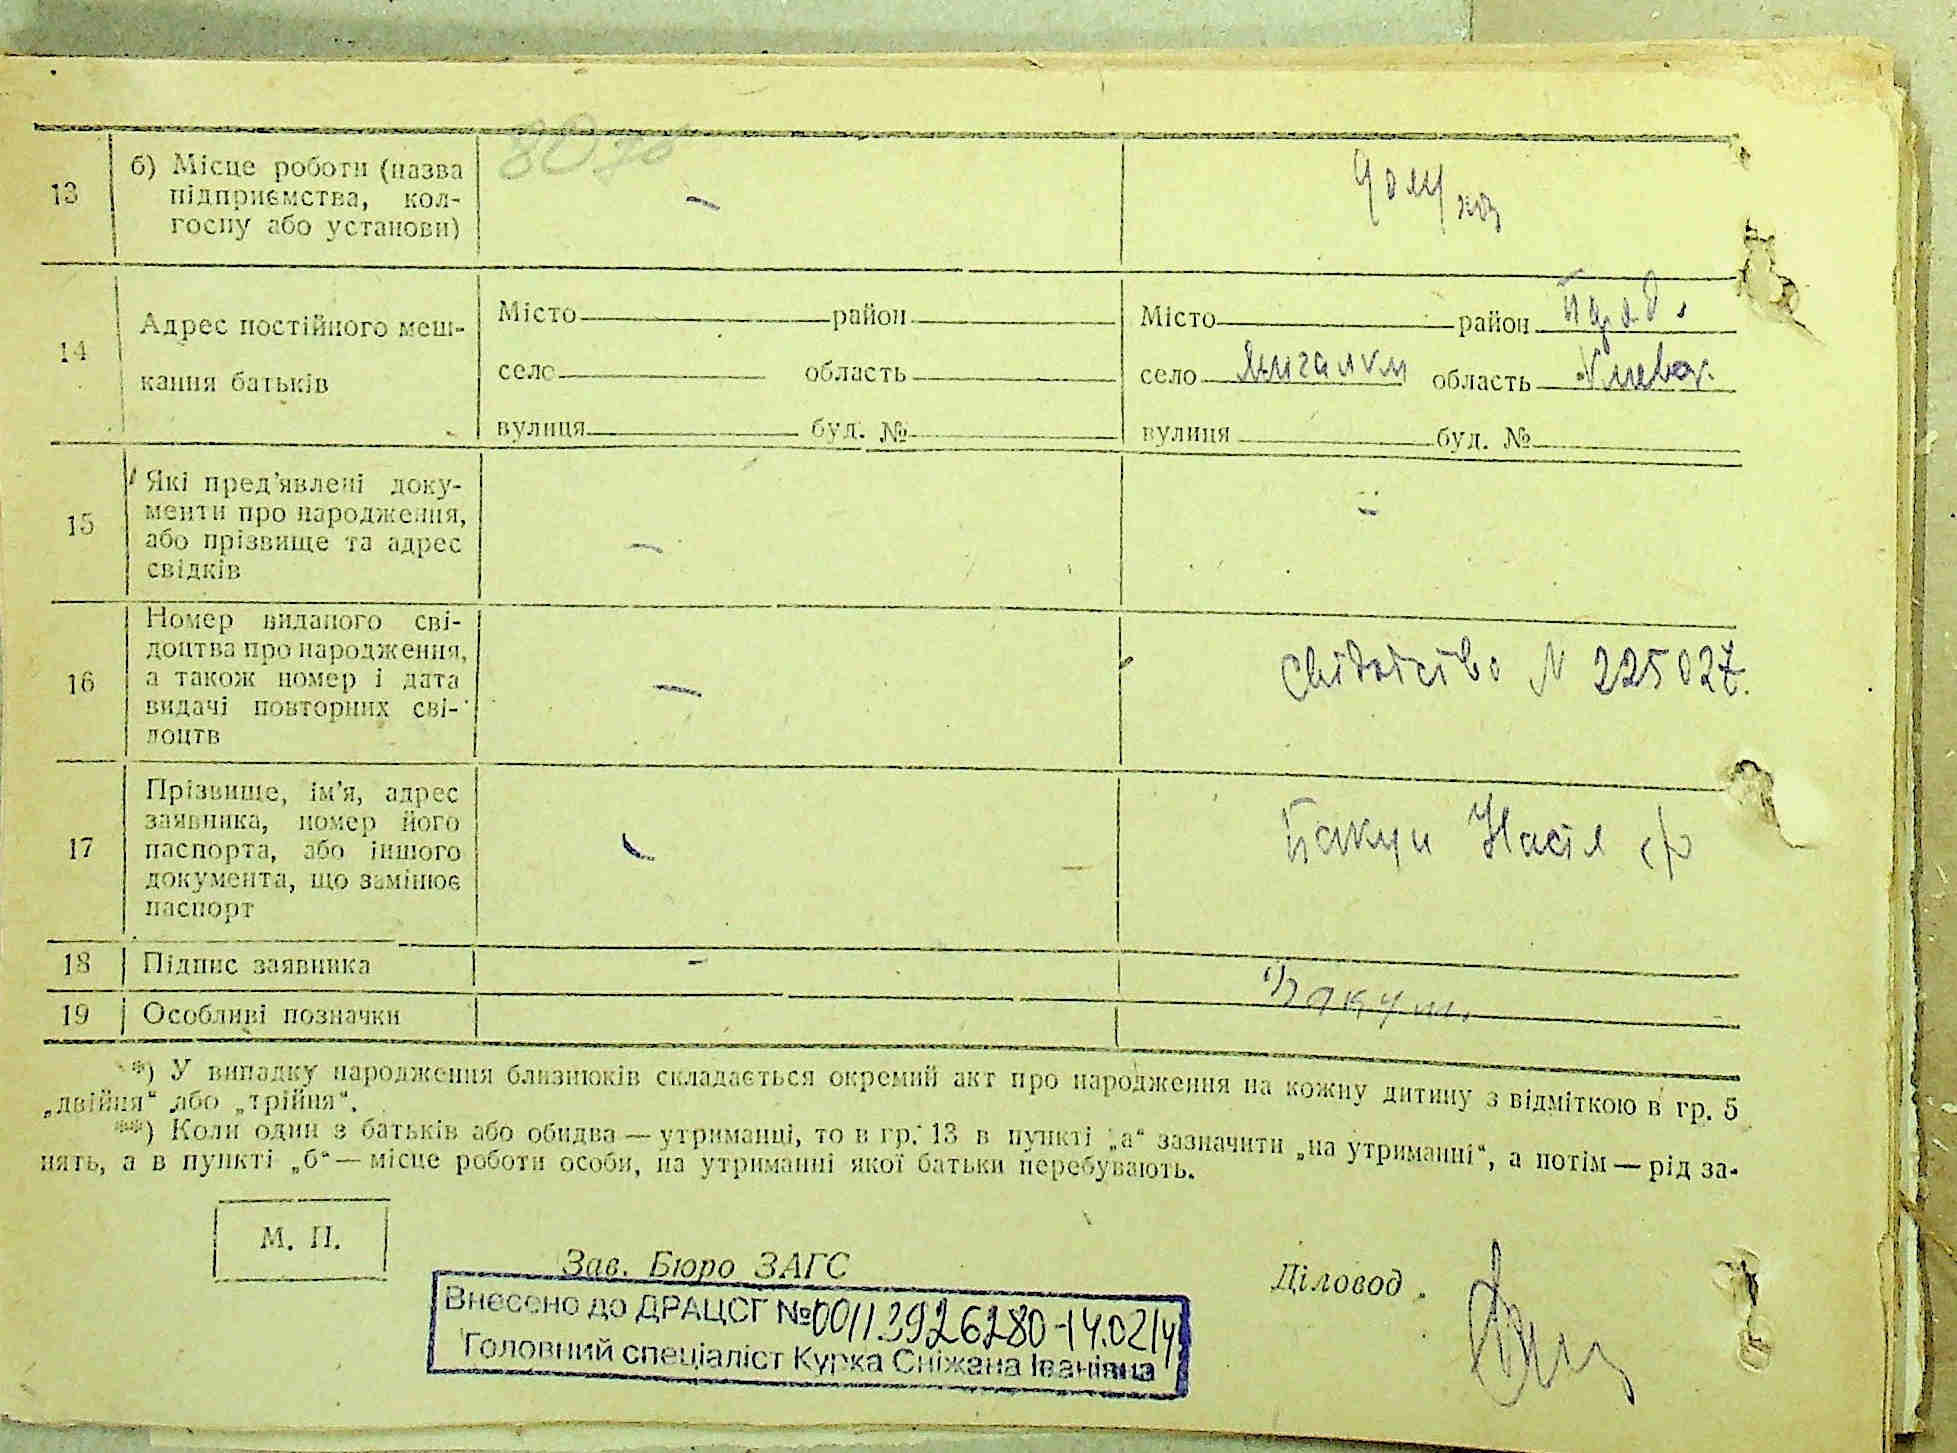 13
б) Місце роботи (назва
підприємства, кол-
госпу або установи)
–
14
Адрес постійного меш-
кання батьків
Місто район
село область
вулиця буд. №
Місто район Бород.
село Мигалки область Киевск.
вулиця буд. №
15
Які пред'явлені доку-
менти про народження,
або прізвище та адрес
свідків
–
16
Номер виданого сві-
доцтва про народження,
а також номер і дата
видачі повторних сві-
доцтв
–
Свідоцтво N 225027.
17
Прізвище, ім'я, адрес
заявника, номер його
паспорта, або іншого
документа, що замінює
паспорт
–
Бакун
18
Підпис заявника
–
Бакун.
19
Особливі позначки
*) У випадку народження близнюків складається окремий акт про народження на кожну дитину з відміткою в гр. 5
„двійня“ або „трійня“.
**) Коли один з батьків або обидва — утриманці, то в гр. 13 в пункті „а“ зазначити „на утриманні“, а потім — рід за-
нять, а в пункті „б“ — місце роботи особи, на утриманні якої батьки перебувають.
М. П.
Зав. Бюро ЗАГС
Діловод
Внесено до ДРАЦСГ №00113926280-14.02.14
Головний спеціаліст Курка Сніжана Іванівна